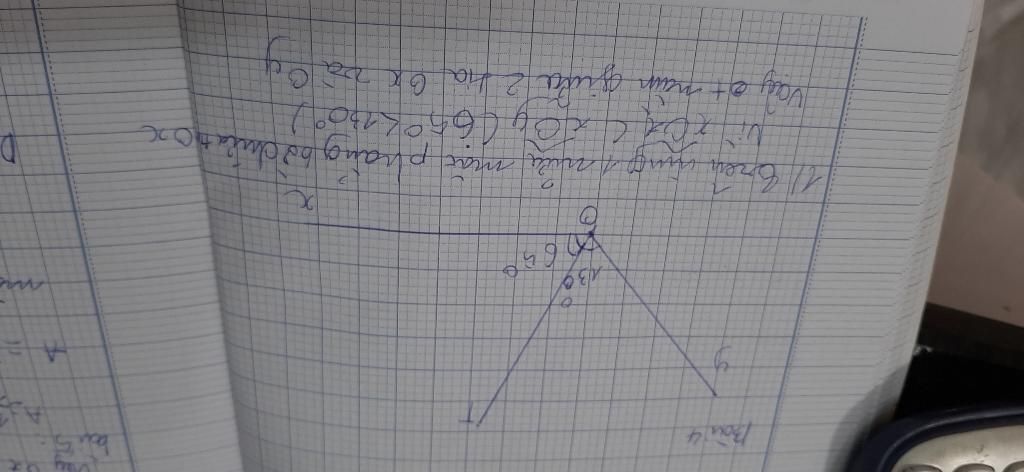 Bài 4
y
T
130°
65°
O
x
1) Trên cùng 1 nửa mặt phẳng bờ chứa tia Ox
Vì xOt < xOy (65° < 130°)
Vậy Ot nằm giữa 2 tia Ox và Oy
Vậy Ox
bài 5:
A
A =
D